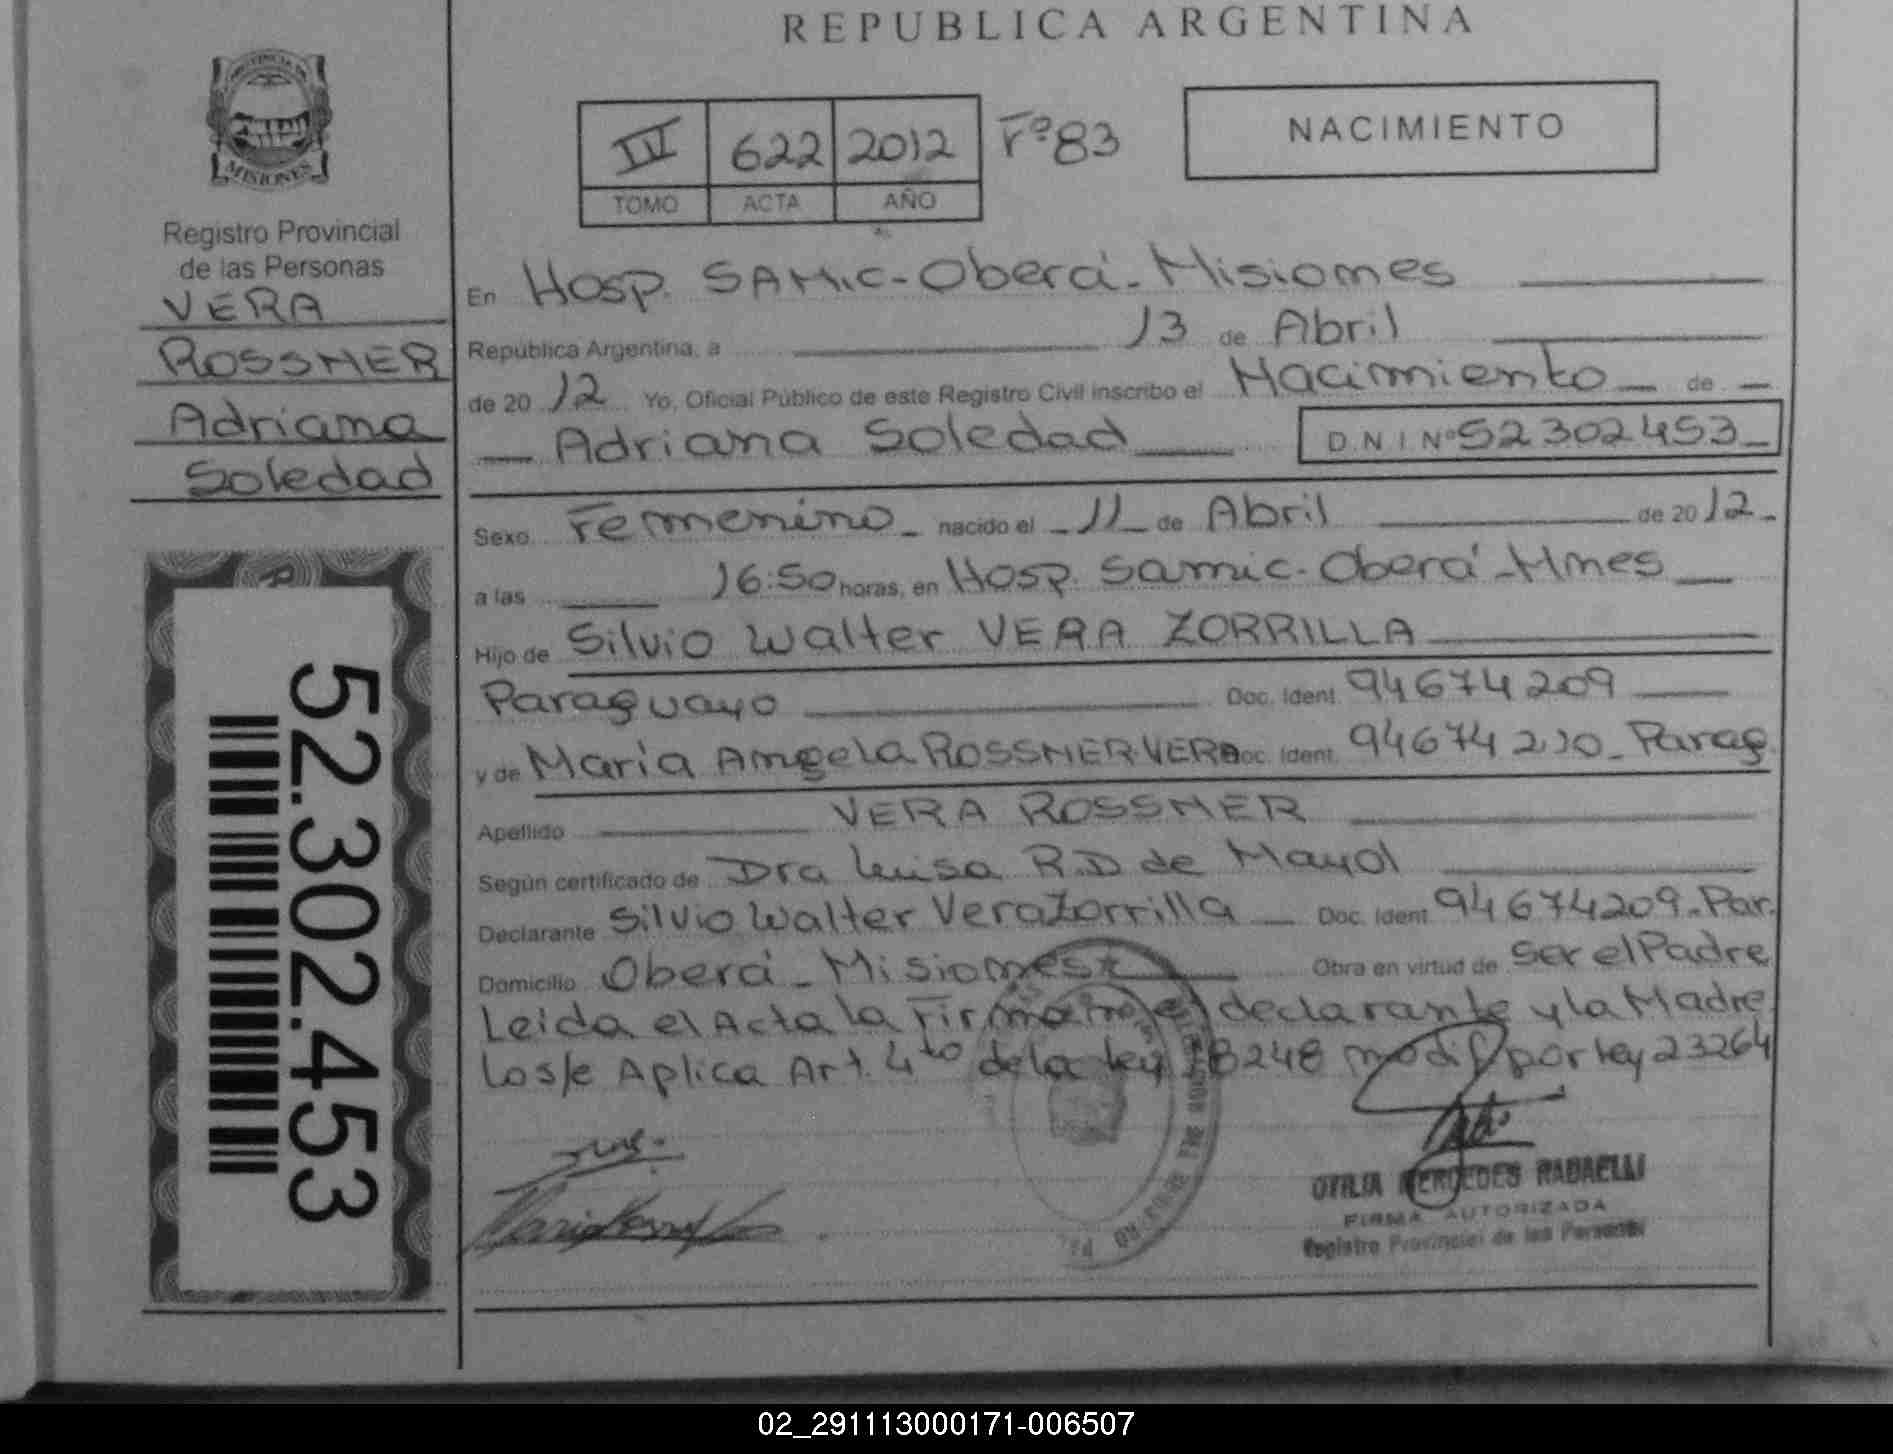 REPUBLICA ARGENTINA
PROVINCIA DE
MISIONES
Registro Provincial
de las Personas
VERA
ROSSNER
Adriana
Soledad
52.302.453
IV 622 2012 Fº83
TOMO ACTA AÑO
NACIMIENTO
En Hosp. SAMIC-Oberá-Misiones
República Argentina, a 13 de Abril
de 2012 Yo, Oficial Público de este Registro Civil inscribo el Nacimiento de
Adriana Soledad D.N.I Nº 52302453
Sexo Femenino nacido el 11 de Abril de 2012
a las 16:50 horas, en Hosp. Samic-Oberá-Mnes
Hijo de Silvio Walter VERA ZORRILLA
Paraguayo Doc. Ident. 94674209
y de María Angela ROSSNER VERA Doc. Ident. 94674210 Parag
Apellido VERA ROSSNER
Según certificado de Dra Luisa R.D de Mayol
Declarante Silvio Walter Vera Zorrilla Doc. Ident. 94674209-Par.
Domicilio Oberá-Misiones Obra en virtud de Ser el Padre
Leida el Acta la Firman el declarante y la Madre
Los/e Aplica Art. 4to de la Ley 18248 modif por ley 23264
OTILIA MERCEDES RADAELLI
FIRMA AUTORIZADA
Registro Provincial de las Personas
02_291113000171-006507